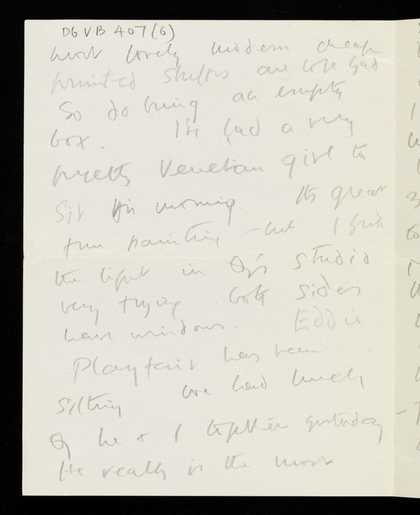 DG VB 407 (6)
most lovely modern cheap
printed stuffs are to be had
So do bring an empty
box. We had a very
pretty Venetian girl to
sit this morning. Its great
fun painting – but I find
the light in Og's studio
very trying both sides
have windows. Eddie
Playfair has been
sitting we had lunch
Og he & I together yesterday –
He really is the most